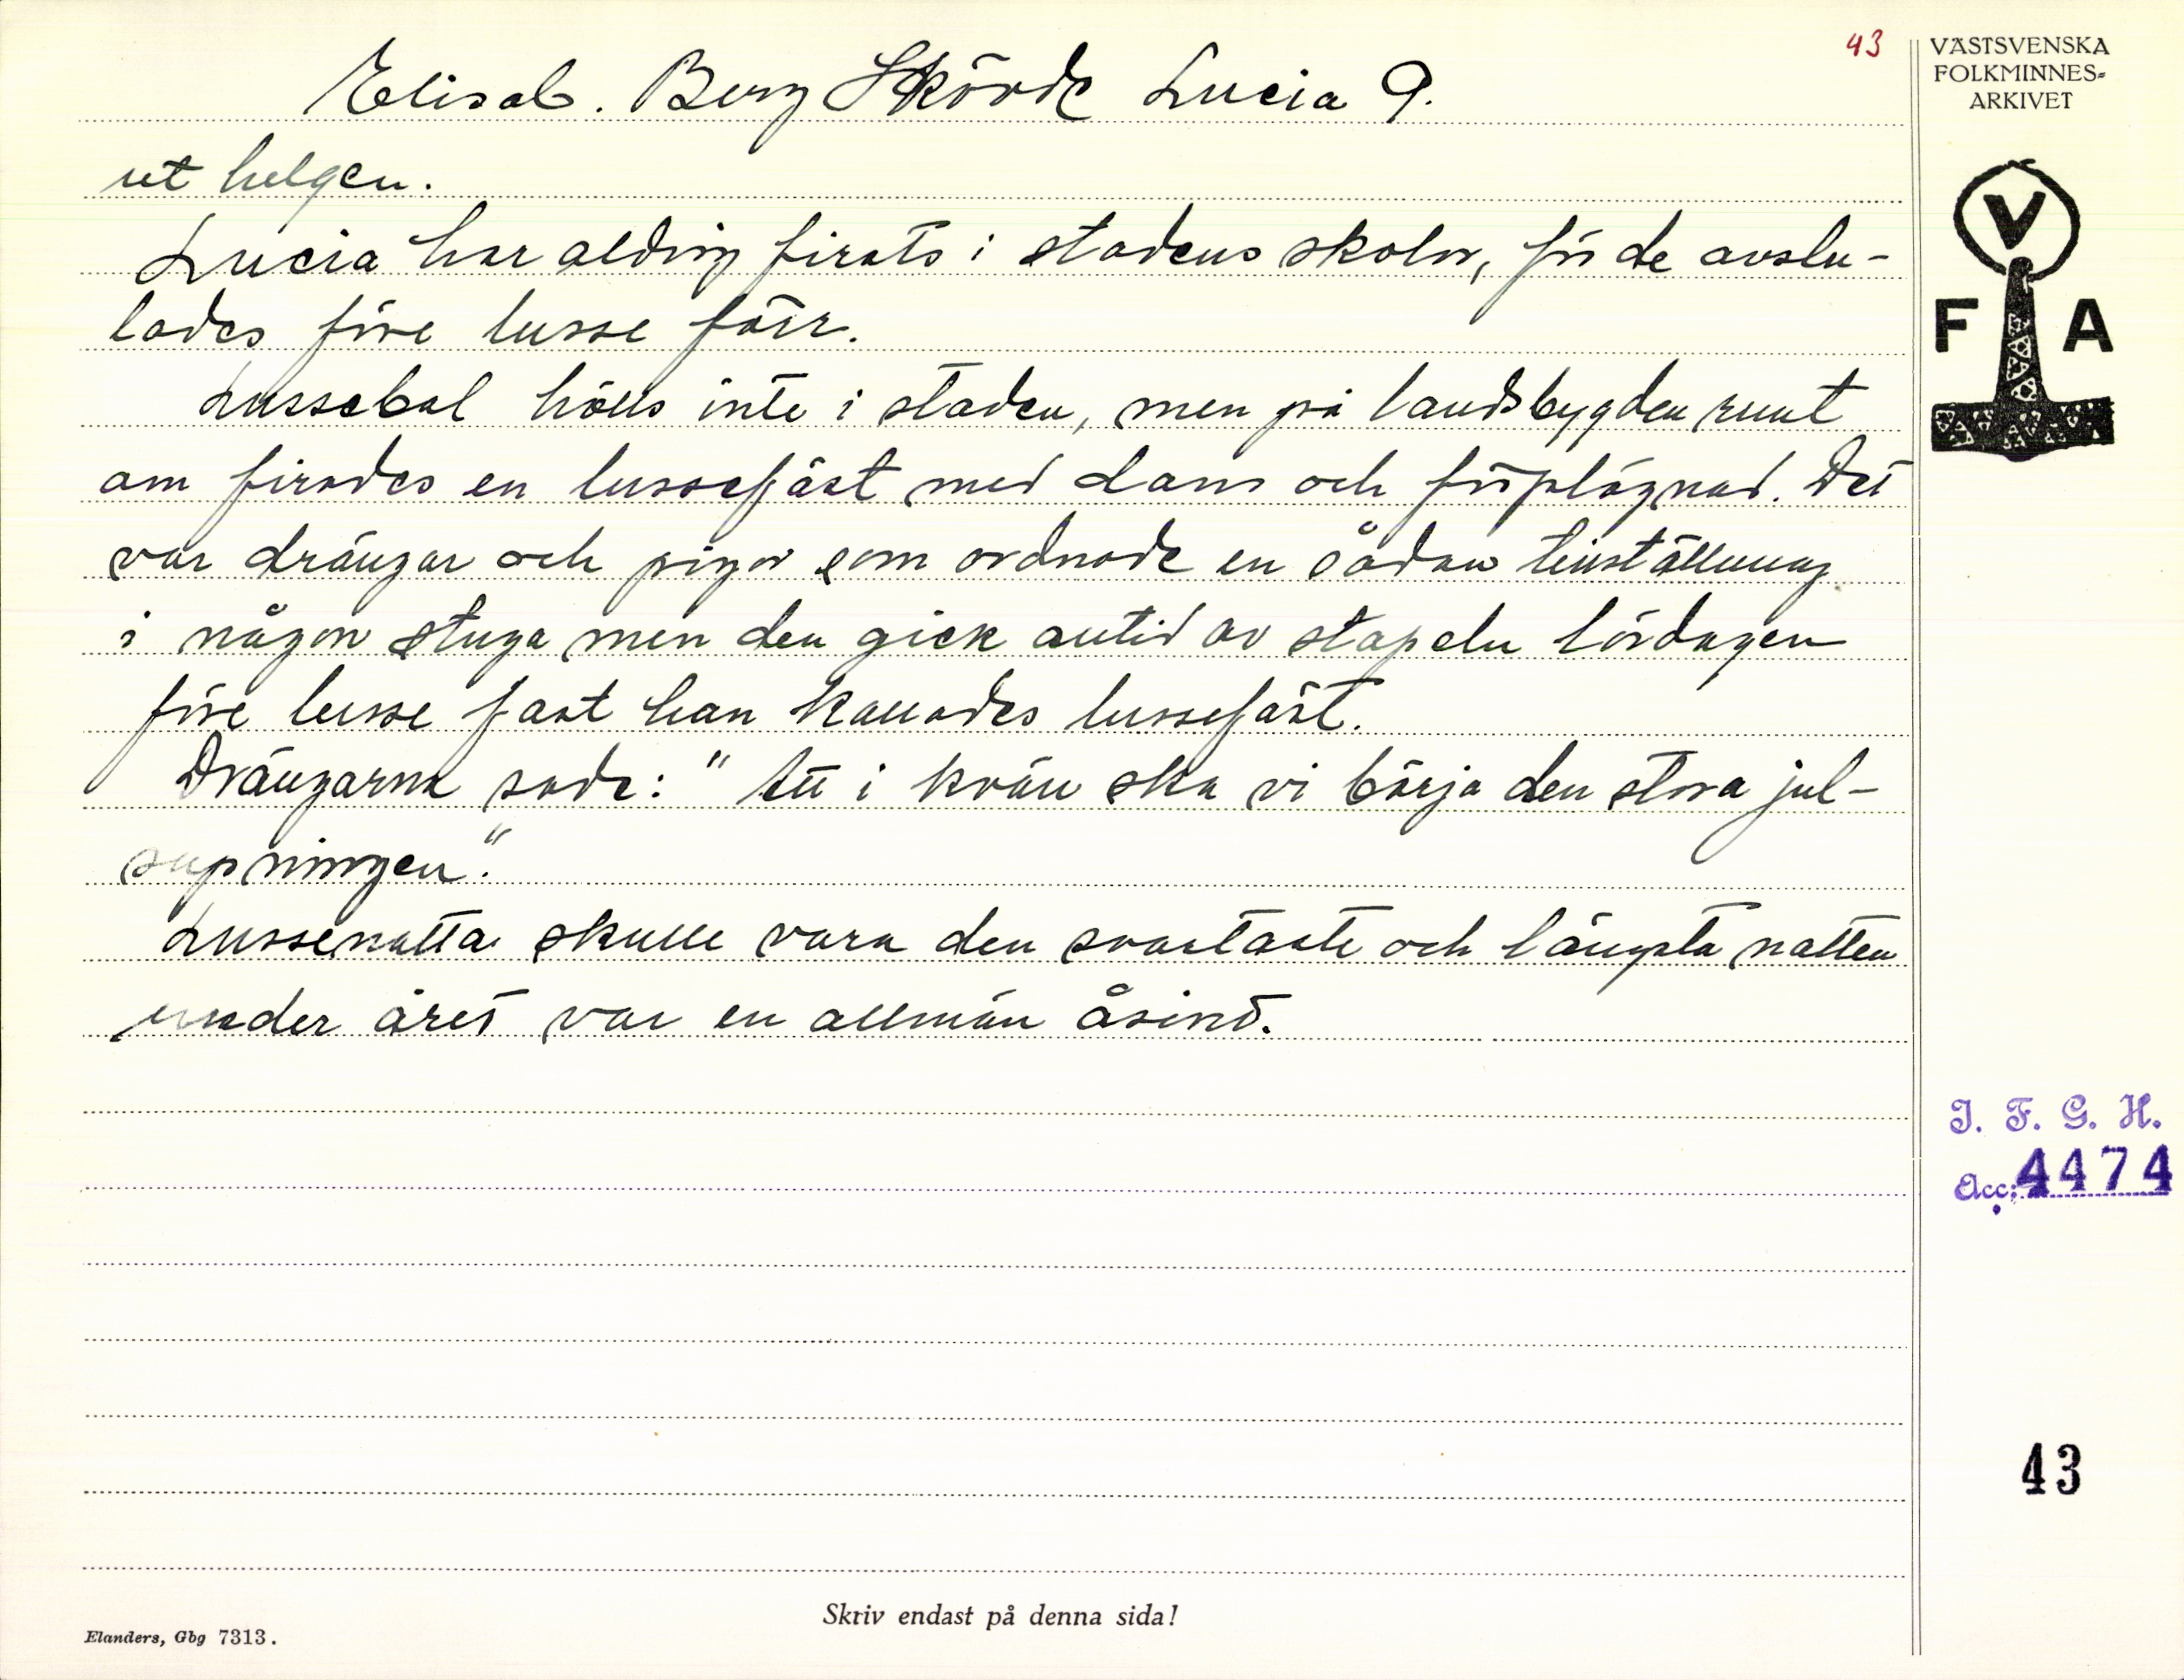 43
VÄSTSVENSKA
FOLKMINNES=
ARKIVET
Elisab. Berg Skövde Lucia 9.
ut helgen.
Lucia har aldrig firats i stadens skolor, för de avslu-
tades före lusse förr.
Lussebal hölls inte i staden, men på landsbygden runt
om firades en lussefäst med dans och förplägnad. Det
var drängar och pigor som ordnade en sådan tillställning
i någon stuga men den gick alltid av stapeln lördagen
före lusse fast han kallades lussefäst.
Drängarna sade: " i kväll ska vi börja den stora jul-
supningen."
Lussenatta skulle vara den svartaste och längsta natten
under året var en allmän åsikt.
V
F A
I. F. G. H.
Acc: 4474
43
Skriv endast på denna sida!
Elanders, Gbg 7313.